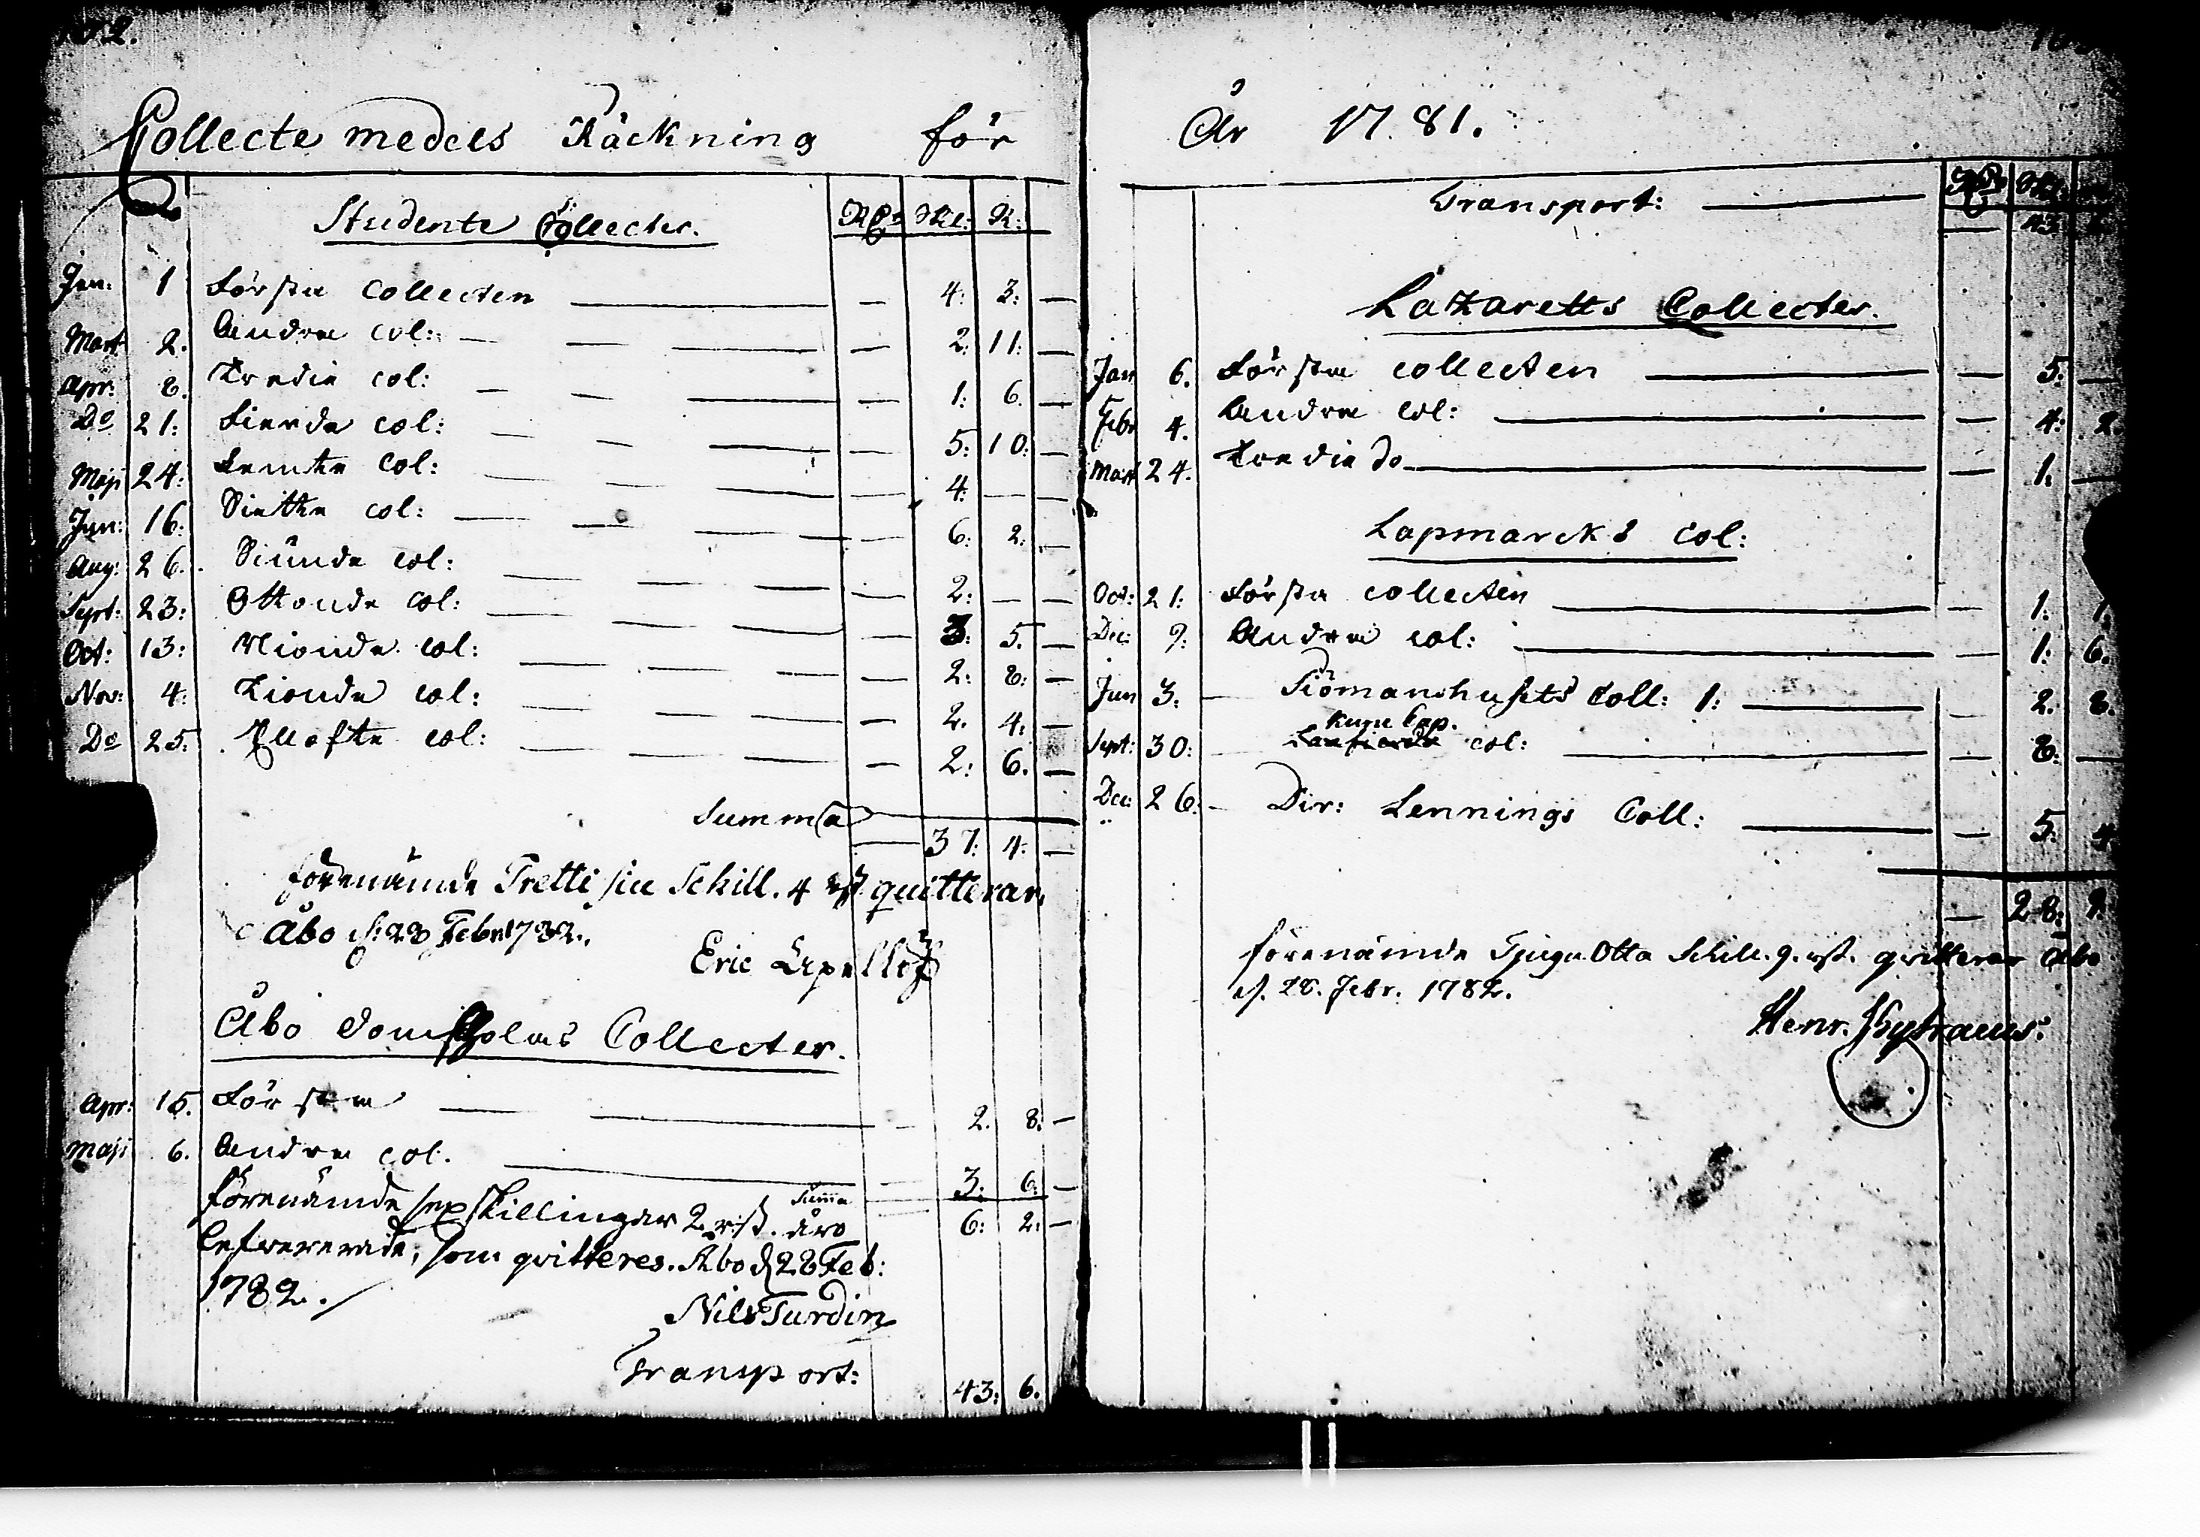 Collecte medels Räckning för
Studente Collecter. Rd: Skl: R:
Jan. 1 Första Collecten — 4: 3: —
Mart 2. Andra Col: — 2: 11: —
Apr: 8. Tredie Col: — 1: 6. —
Do 21: Fierda Col: — 5: 10: —
Maji 24: Femte Col: — 4: — —
Jun: 16. Siette Col: — 6: 2: —
Aug: 26. Siunde Col: — 2: — —
Sept: 23: Ottonde Col: — 3: 5. —
Oct: 13: Nionde Col: — 2: 8: —
Nov: 4: Tionde Col: — 2. 4: —
Do 25. Ellofte Col: — 2: 6. —
Summa — 37: 4. —
förenämde Tretti siu Schill. 4 rst quitterar,
Åbo d: 28 Febr 1782.
Eric Lapellöf
Åbo Domscholas Collecter.
Apr: 15. Första — 2. 8. —
Maji 6. Andra Col. — 3: 6: —
Summa 6: 2: —
förenämde sex skillingar 2 r:st. äro
lefvererade, som qvitteres. Åbo d 28 Feb:
1782.
Nils Turdin
Transport: 43: 6.
År 1781.
Rd Skl
Transport: — 43: 6
Lazaretts Collecter.
Jan 6. Första Collecten — 5. —
Febr 4. Andra Col: — 4: 2.
Mart 24. Tredie do — 1. —
Lapmarcks Col:
Oct: 21: Första Collecten — 1: 1.
Dec: 9: Andra Col: — 1: 6.
Jun 3. — Siömanshusets Coll: 1: — 2. 8.
Sept: 30: col: — 8: —
Dec: 26: — Dir: Lennings Coll: — 5: 4
— 28: 9.
förenämde Tjugu Otta Schill. 9. rst. qvitterar Åbo
d. 28. Febr. 1782.
Henr.